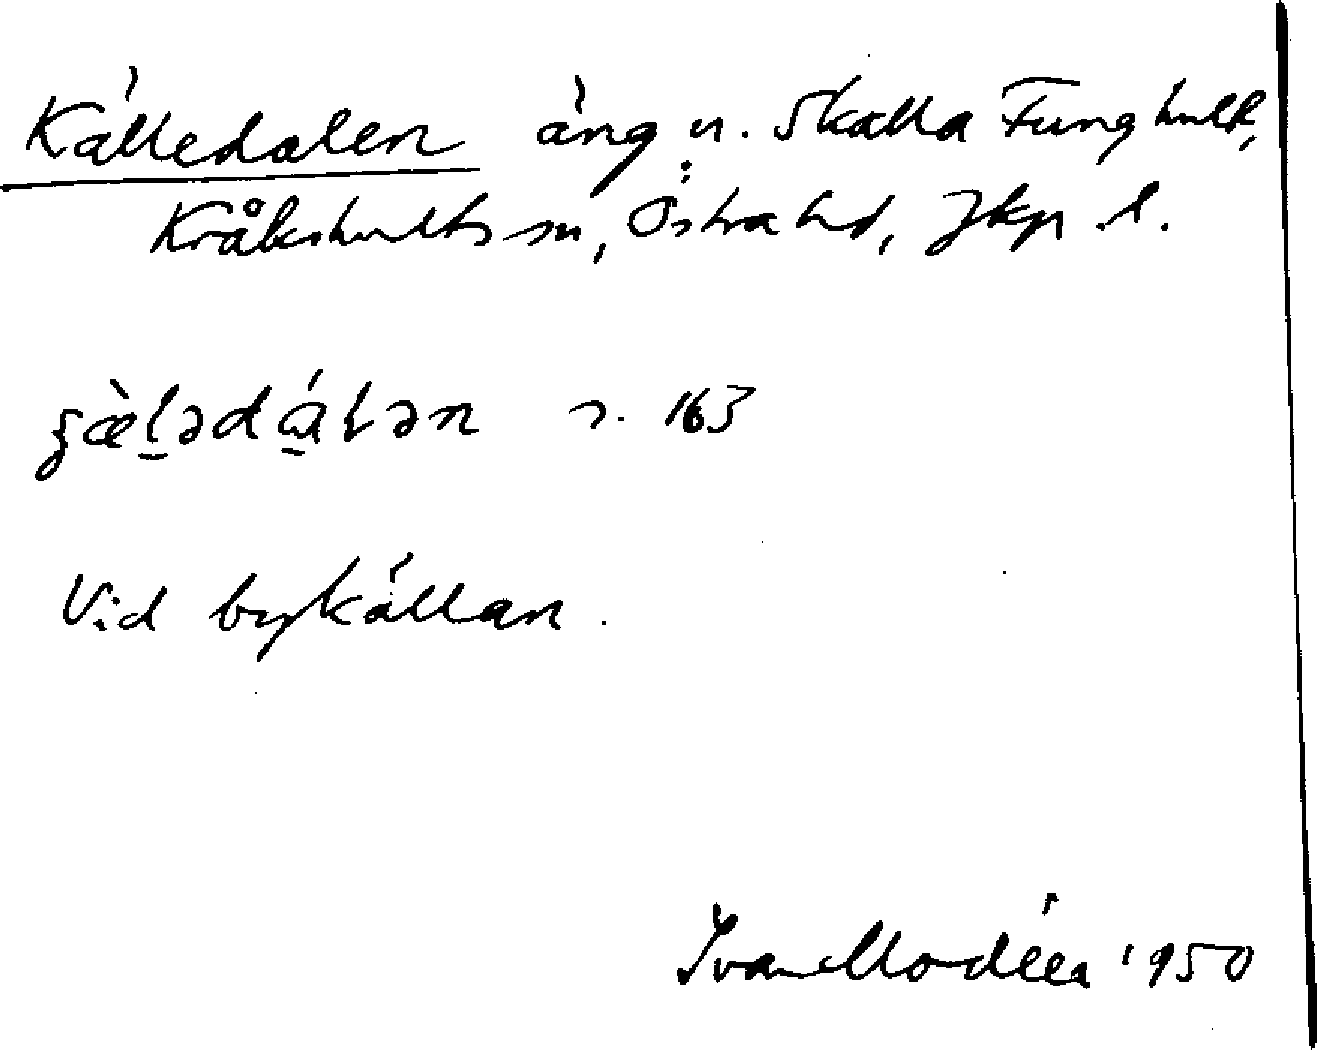 Källedalen äng u. Skalla Funghult,
Kråkshults sn, Östra hd, Jkp. l.
s. 163
Vid bykällan.
Ivar Modéer 1950